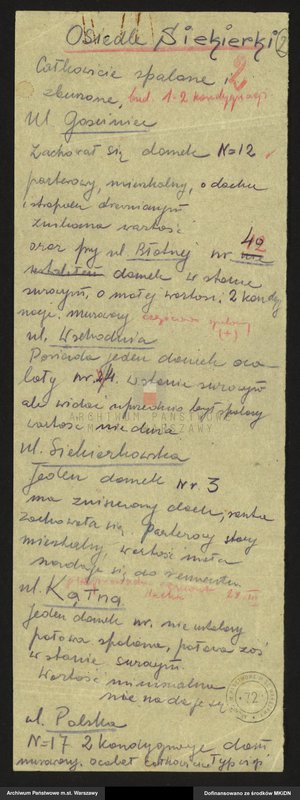 Osiedle Siekierki
2
Całkowicie spalone i
zburzone, bud. 1-2 kondygnacji
Ul Gościniec
Zachował się domek N=12
parterowy, mieszkalny, o dachu
i stropach drewnianych
znikoma wartość
oraz przy ul Błotnej nr
domek w stanie
surowym, o małej wartości, 2 kondy
gnacje, murowany
ul. Wschodnia
Posiada jeden domek oca-
lały nr w stanie surowym
ale widać uprzednio był spalony
wartość nie duża
ARCHIWUM PAŃSTWOWE
M WARSZAWY
ul. Siekierkowska
Jeden domek nr 3
ma zniszczony dach, reszta
zachowała się. Parterowy stary
mieszkalny, wartość mała
nadaje się do remontu
ul. Kątna
jeden domek nr. nie ustalony
połowa spalona, połowa zaś
w stanie surowym
Wartość minimalna
nie nadaje się
72
ul. Polska
N=17 2 kondygnacje dom
murowany, ocalał całkowicie
Archiwum Państwowe m.st. Warszawy
Dofinansowano ze środków MKiDN